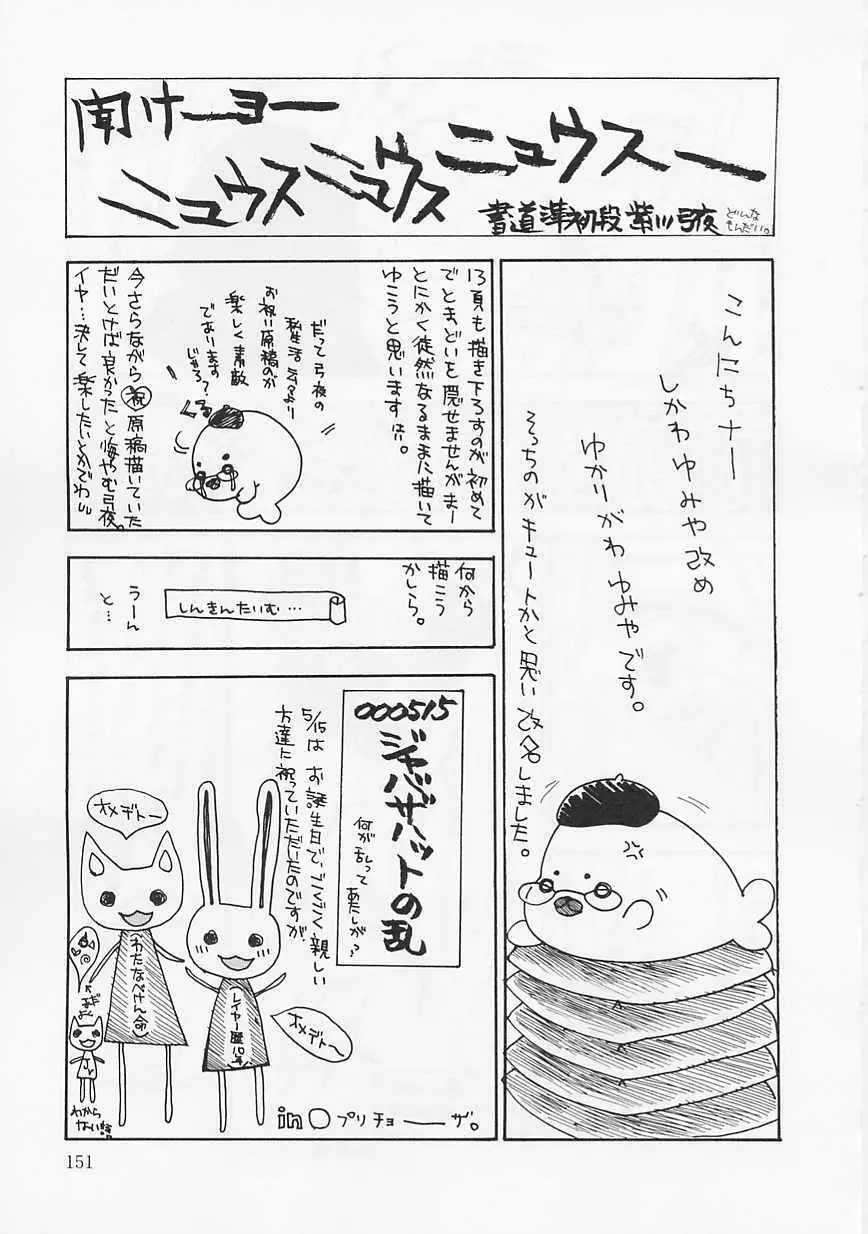 聞けーヨー
ニュウスニュウスニュウスー
書道準初段 紫川弓夜
どんな
もんだい。
こんにちナー
しかわゆみや改め
ゆかりがわ ゆみやです。
そっちのがキュートかと思い改名しました。
13頁も描き下ろすのが初めて
でとまどいを隠せませんがまー
とにかく徒然なるままに描いて
ゆこうと思います
だって弓夜の
私生活
お祝い原稿のが
楽しく素敵
であります
じゃろ?
今さらながら祝原稿描いていた
だいとけば良かったと悔やむ弓夜。
イヤ…決して楽したいとかでわ
何から
描こう
かしら。
しんきんたいむ…
うーん
と…
000515
ジャバザハットの乱
何が乱って
あたしが?
5/15は お誕生日で、ごくごく親しい
方達に祝っていただいたのですが
オメデトー
わたなべけん命
レイヤー歴10年
オメデトー
わから
ない
in○プリチョーザ。
151